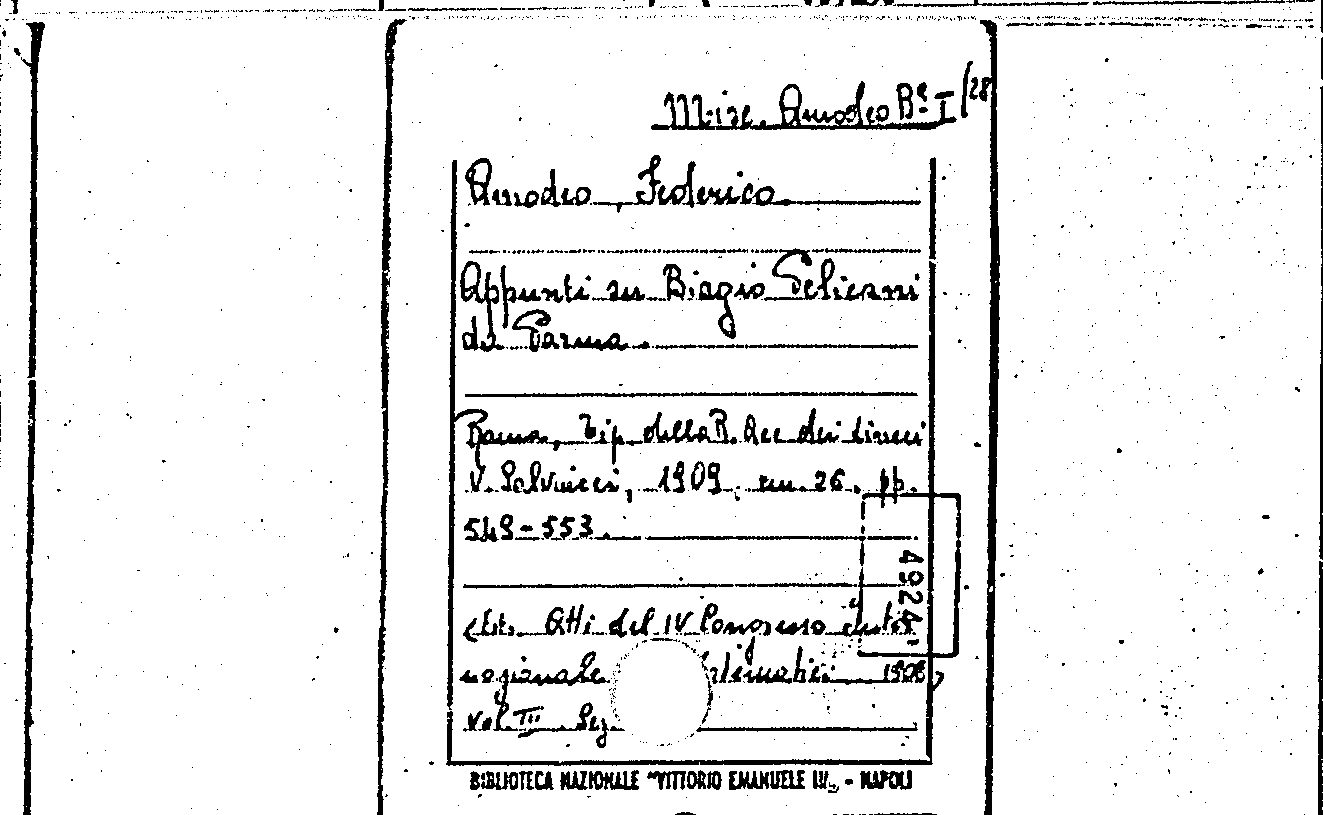 Misc. Amodeo Bª I/28
Amodeo, Federico.
Appunti su Biagio Pelicani
da Parma.
Roma, Tip. della R. Acc. dei Lincei
V. Salviucci, 1909, cm. 26. pp.
549-553.
4924
Estr. Atti del IV Congresso inter
nazionale matematici 1908,
vol. III Sez.
BIBLIOTECA NAZIONALE "VITTORIO EMANUELE III" - NAPOLI